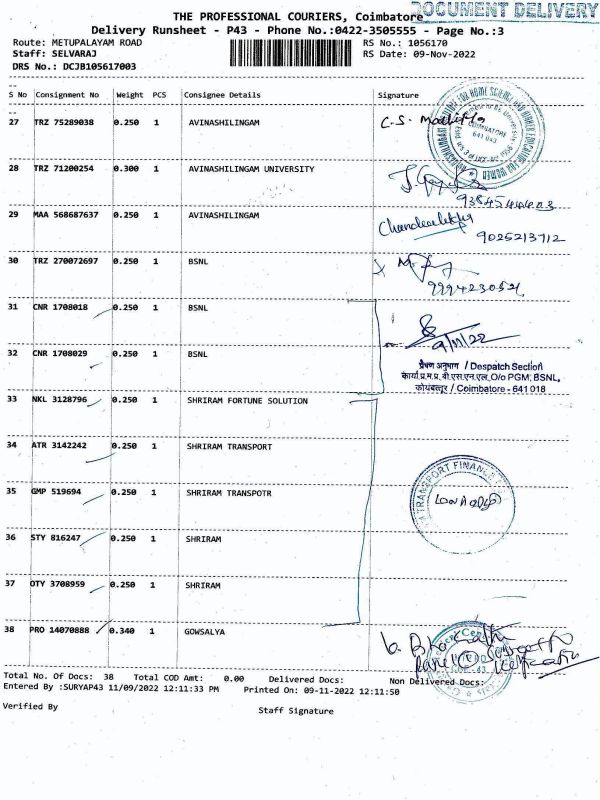 DOCUMENT DELIVERY
THE PROFESSIONAL COURIERS, Coimbatore
Delivery Runsheet - P43 - Phone No.:0422-3505555 - Page No.:3
Route: METUPALAYAM ROAD RS No.: 1056170
Staff: SELVARAJ RS Date: 09-Nov-2022
DRS No.: DCJB105617003
S No Consignment No Weight PCS Consignee Details Signature
27 TRZ 75289038 0.250 1 AVINASHILINGAM
COIMBATORE
641 043
28 TRZ 71200254 0.300 1 AVINASHILINGAM UNIVERSITY
29 MAA 568687637 0.250 1 AVINASHILINGAM
Chandralekha
9025213712
30 TRZ 270072697 0.250 1 BSNL
31 CNR 1708018 0.250 1 BSNL
9/11/22
32 CNR 1708029 0.250 1 BSNL
प्रेषण अनुभाग / Despatch Section
कार्या.प्र.म.प्र. बी.एस.एन.एल, O/o PGM, BSNL,
कोयंबत्तूर / Coimbatore - 641 018
33 NKL 3128796 0.250 1 SHRIRAM FORTUNE SOLUTION
34 ATR 3142242 0.250 1 SHRIRAM TRANSPORT
TRANSPORT FINANCE
35 GMP 519694 0.250 1 SHRIRAM TRANSPOTR
36 STY 816247 0.250 1 SHRIRAM
37 OTY 3708959 0.250 1 SHRIRAM
38 PRO 14070888 0.340 1 GOWSALYA
Total No. Of Docs: 38 Total COD Amt: 0.00 Delivered Docs: Non Delivered Docs:
Entered By :SURYAP43 11/09/2022 12:11:33 PM Printed On: 09-11-2022 12:11:50
Verified By
Staff Signature